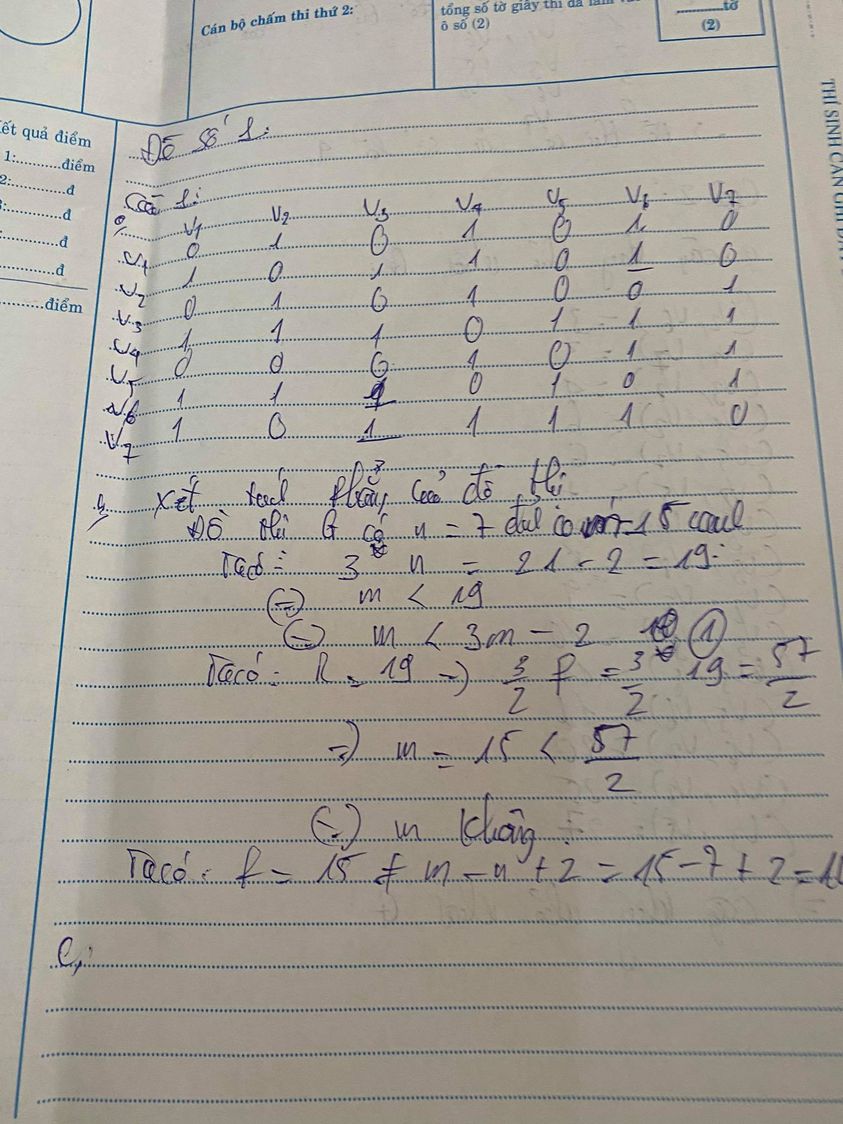 Cán bộ chấm thi thứ 2:
tổng số tờ giấy thi đã làm
ô số (2)
tờ
(2)
THÍ SINH CẦN GHI ĐẦY
ết quả điểm
1:..........điểm
2:............đ
:............đ
:............đ
............đ
.........điểm
Đề số 1:
Câu 1:
V1 V2 V3 V4 V5 V6 V7
V1 0 1 0 1 0 1 0
V2 1 0 1 1 0 1 0
V3 0 1 0 1 0 0 1
V4 1 1 1 0 1 1 1
V5 0 0 0 1 0 1 1
V6 1 1 1 0 1 0 1
V7 1 0 1 1 1 1 0
b, Xét phẳng của đồ thị
Đồ thị G có n = 7 15
Ta có: 3 * n = 21 - 2 = 19
(=) m < 19
(=) m < 3m - 2 (1)
Ta có: = 19 =) 3/2 f = 3/2 * 19 = 57/2
=) m = 15 < 57/2
(=) m không
Ta có: f = 15 ≠ m - n + 2 = 15 - 7 + 2 =
C,